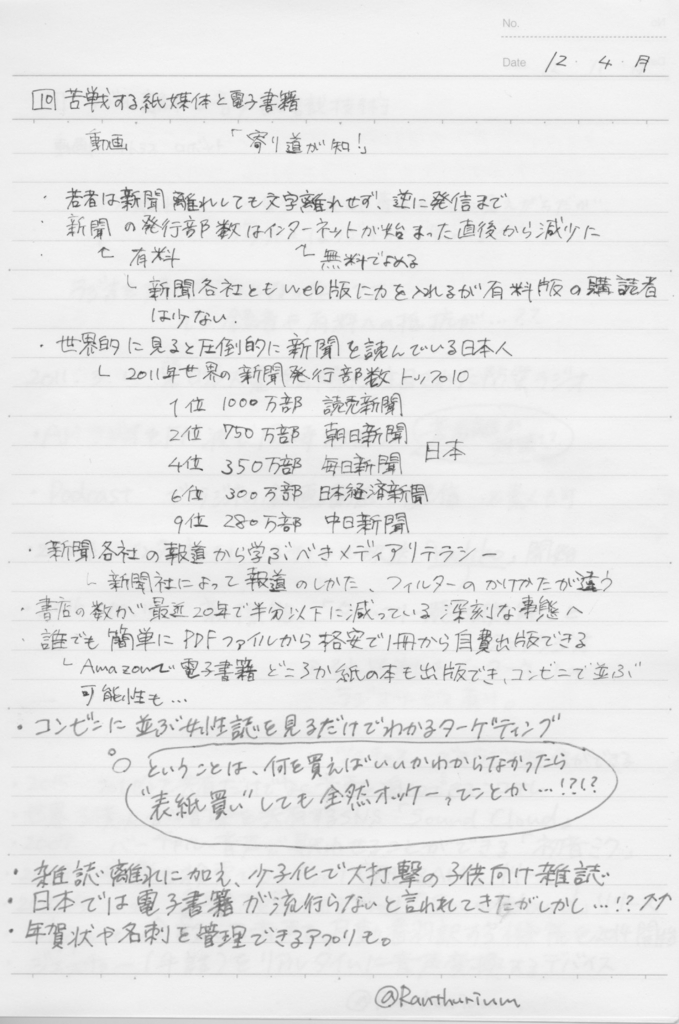 No.
Date 12・4・月
10 苦戦する紙媒体と電子書籍
動画 「寄り道が知!」
・若者は新聞離れしても文字離れせず、逆に発信まで
・新聞の発行部数はインターネットが始まった直後から減少に
↑有料 ↑無料でよめる
└新聞各社ともweb版に力を入れるが有料版の購読者
は少ない.
・世界的に見ると圧倒的に新聞を読んでいる日本人
└2011年世界の新聞発行部数トップ10
1位 1000万部 読売新聞
2位 750万部 朝日新聞
4位 350万部 毎日新聞 日本
6位 300万部 日本経済新聞
9位 280万部 中日新聞
・新聞各社の報道から学ぶべきメディアリテラシー
└新聞社によって報道のしかた、フィルターのかけかたが違う
・書店の数が最近20年で半分以下に減っている深刻な事態へ
・誰でも簡単にPDFファイルから格安で1冊から自費出版できる
└Amazonで電子書籍どころか紙の本も出版でき、コンビニで並ぶ
可能性も…
・コンビニに並ぶ女性誌を見るだけでわかるターゲティング
ということは、何を買えばいいかわからなかったら
"表紙買い"しても全然オッケーってことか…!?!?
・雑誌離れに加え、少子化で大打撃の子供向け雑誌
・日本では電子書籍が流行らないと言われてきたがしかし…!?
・年賀状や名刺を管理できるアプリも。
@Ranthurium